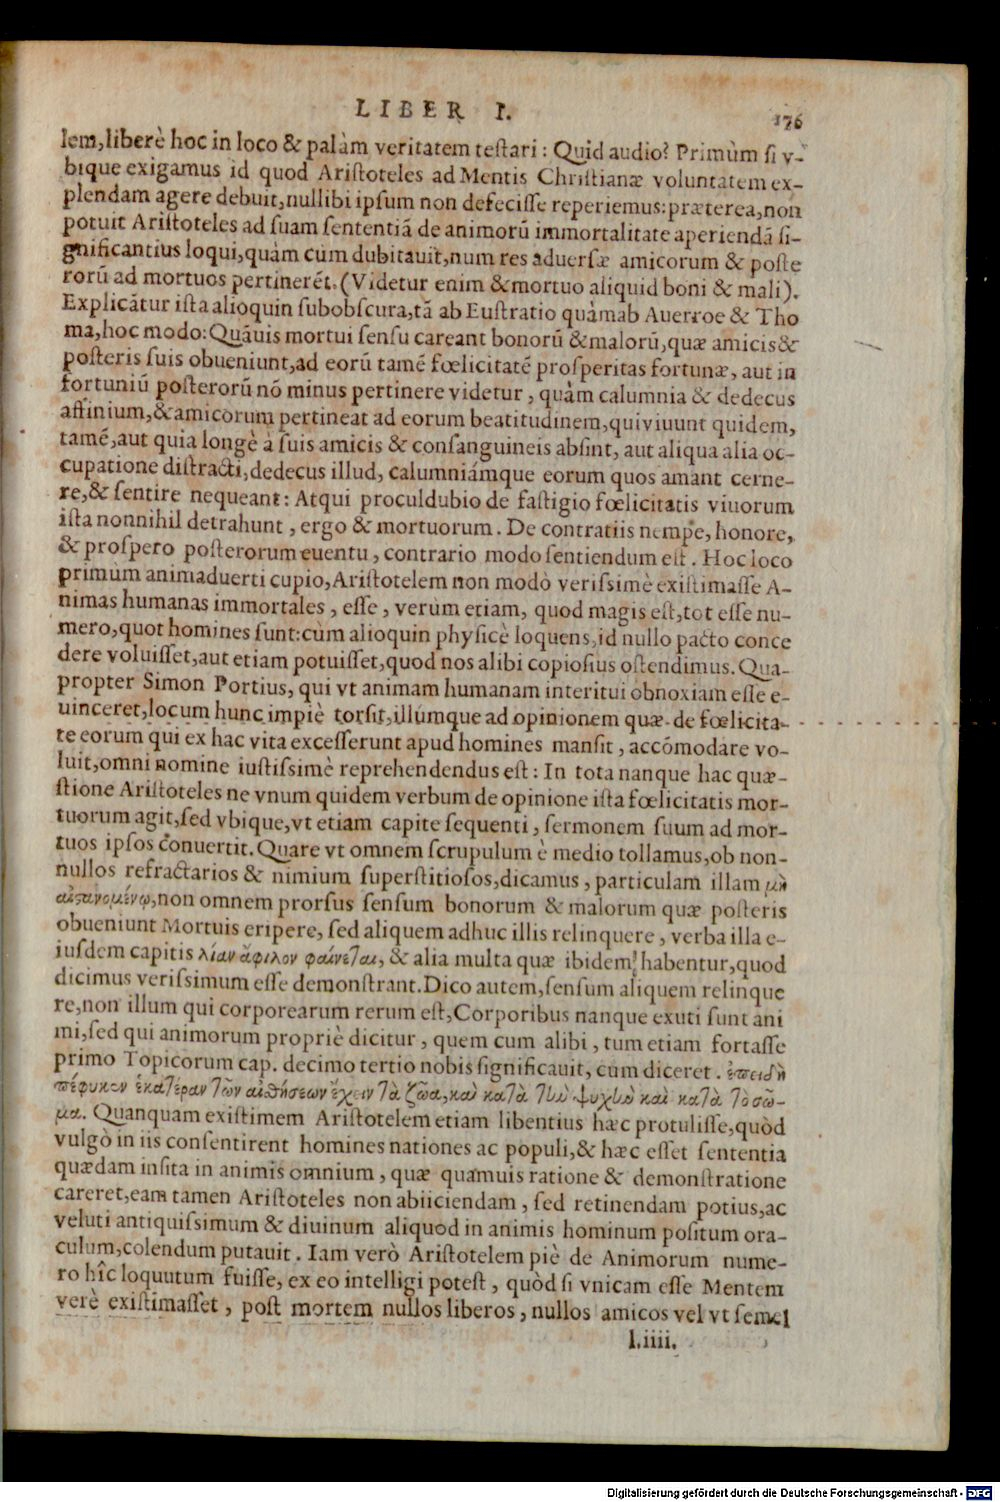 LIBER I.
176
lem,liberè hoc in loco & palàm veritatem testari : Quid audio? Primùm si v-
bique exigamus id quod Aristoteles ad Mentis Christianæ voluntatem ex-
plendam agere debuit,nullibi ipsum non defecisse reperiemus:præterea,non
potuit Aristoteles ad suam sententiã de animorũ immortalitate aperiendã si-
gnificantius loqui,quàm cùm dubitauit,num res aduersæ amicorum & poste
rorũ ad mortuos pertinerẽt.(Videtur enim &mortuo aliquid boni & mali).
Explicãtur ista alioquin subobscura,tã ab Eustratio quàmab Auerroe & Tho
ma,hoc modo:Quãuis mortui sensu careant bonorũ &malorũ,quæ amicis&
posteris suis obueniunt,ad eorũ tamẽ fœlicitatẽ prosperitas fortunæ, aut in
fortuniũ posterorũ nõ minus pertinere videtur, quàm calumnia & dedecus
affinium,&amicorum pertineat ad eorum beatitudinem,quiviuunt quidem,
tamẽ,aut quia longè à suis amicis & consanguineis absint, aut aliqua alia oc-
cupatione distracti,dedecus illud, calumniámque eorum quos amant cerne-
re,& sentire nequeant: Atqui proculdubio de fastigio fœlicitatis viuorum
ista nonnihil detrahunt , ergo & mortuorum. De contrariis nempe, honore,
& prospero posterorum euentu, contrario modo sentiendum est . Hoc loco
primùm animaduerti cupio,Aristotelem non modò verissimè existimasse A-
nimas humanas immortales , esse , verùm etiam, quod magis est,tot esse nu-
mero,quot homines sunt:cùm alioquin physicè loquens,id nullo pacto conce
dere voluisset,aut etiam potuisset,quod nos alibi copiosius ostendimus. Qua-
propter Simon Portius, qui vt animam humanam interitui obnoxiam esse e-
uinceret,locum hunc impiè torsit,illúmque ad opinionem quæ de fœlicita-
te eorum qui ex hac vita excesserunt apud homines mansit , accõmodare vo-
luit,omni nomine iustissimè reprehendendus est : In tota nanque hac quæ-
stione Aristoteles ne vnum quidem verbum de opinione ista fœlicitatis mor-
tuorum agit,sed vbique,vt etiam capite sequenti , sermonem suum ad mor-
tuos ipsos conuertit. Quare vt omnem scrupulum è medio tollamus,ob non-
nullos refractarios & nimium superstitiosos,dicamus , particulam illam μὴ
αἰσθανομένῳ,non omnem prorsus sensum bonorum & malorum quæ posteris
obueniunt Mortuis eripere, sed aliquem adhuc illis relinquere, verba illa e-
iusdem capitis λίαν ἄφιλον φαίνεται, & alia multa quæ ibidem habentur,quod
dicimus verissimum esse demonstrant.Dico autem,sensum aliquem relinque
re,non illum qui corporearum rerum est,Corporibus nanque exuti sunt ani
mi,sed qui animorum propriè dicitur , quem cum alibi , tum etiam fortasse
primo Topicorum cap. decimo tertio nobis significauit, cùm diceret . ἐπειδὴ
πέφυκεν ἑκατέραν τῶν αἰσθήσεων ἔχειν τὰ ζῶα,καὶ κατὰ τὴν ψυχὴν καὶ κατὰ τὸ σῶ-
μα. Quanquam existimem Aristotelem etiam libentius hæc protulisse,quòd
vulgò in iis consentirent homines nationes ac populi,& hæc esset sententia
quædam insita in animis omnium , quæ quamuis ratione & demonstratione
careret,eam tamen Aristoteles non abiiciendam , sed retinendam potius,ac
veluti antiquissimum & diuinum aliquod in animis hominum positum ora-
culum,colendum putauit . Iam verò Aristotelem piè de Animorum nume-
ro hîc loquutum fuisse, ex eo intelligi potest , quòd si vnicam esse Mentem
verè existimasset , post mortem nullos liberos , nullos amicos vel vt semel
l.iiii.
Digitalisierung gefördert durch die Deutsche Forschungsgemeinschaft - DFG